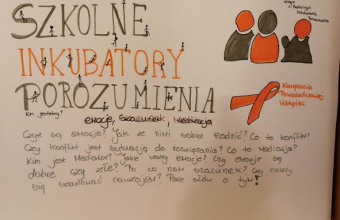 SZKOLNE
INKUBATORY
POROZUMIENIA
Kim jesteśmy?
emocje, szacunek, mediacja
Kampania
Czym są emocje? Jak z nimi sobie radzić? Co to konflikt?
Czy konflikt jest sytuacją do rozwiązania? Co to mediacja?
Kim jest Mediator? Jakie mamy emocje? Czy emocje są
dobre czy złe? Po co nam szacunek? Czy należy
się szanować nawzajem? Parę słów o tym!